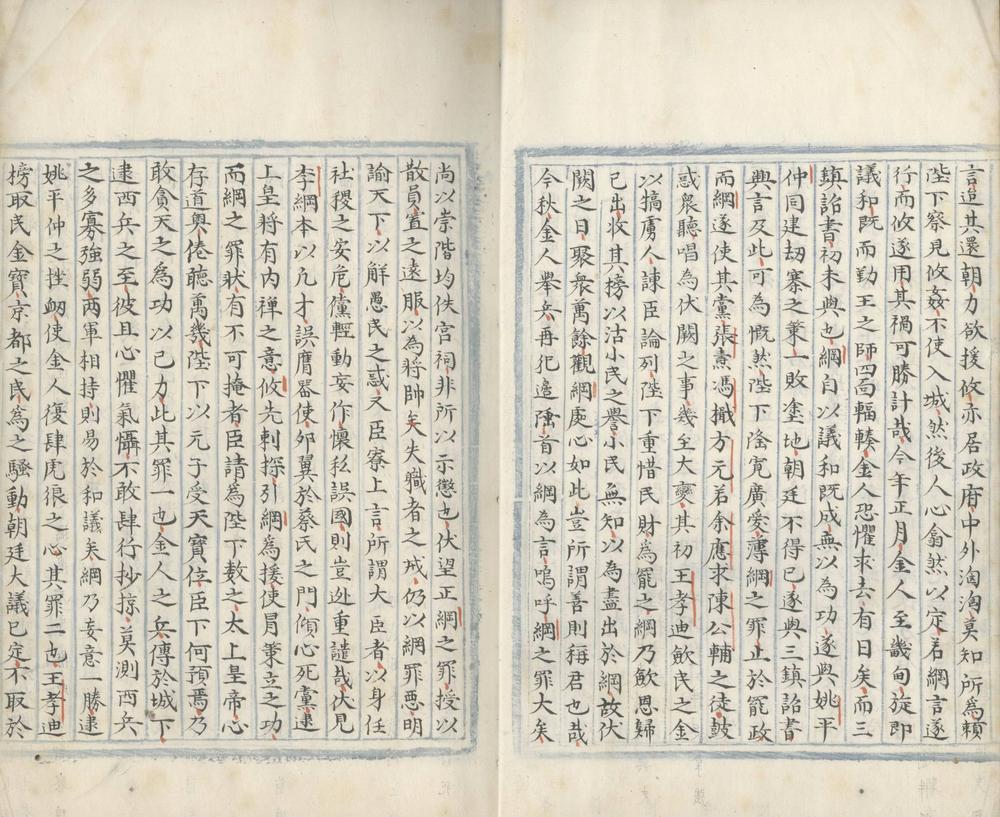 言迨其還朝力欲援攸亦居政府中外洶洶莫知所為賴
陛下察見攸姦不使入城然後人心翕然以定若綱言遂
行而攸遂用其禍可勝計哉今年正月金人至畿甸旋即
議和既而勤王之師四面輻輳金人恐懼求去有日矣而三
鎮詔書初未與也綱自以議和既成無以為功遂與姚平
仲同建刼寨之䇿一敗塗地朝廷不得已遂與三鎮詔書
興言及此可為慨然陛下隆寛廣愛薄綱之罪止於罷政
而綱遂使其黨張燾馮檝方元若余應求陳公輔之徒鼓
惑衆聽唱為伏闕之事幾至大變其初王孝迪歛民之金
以犒虜人諫臣論列陛下重惜民財為罷之綱乃歛恩歸
已出收其榜以沽小民之譽小民無知以為盡出於綱故伏
闕之日聚衆萬餘觀綱處心如此豈所謂善則稱君也哉
今秋金人舉兵再犯邉陲首以綱為言嗚呼綱之罪大矣
尚以崇階均佚宫祠非所以示懲也伏望正綱之罪授以
散員置之遠服以為將帥失職者之戒仍以綱罪惡明
諭天下以解愚民之惑又臣寮上言所謂大臣者以身任
社稷之安危儻輕動妄作懷私誤國則豈逃重譴哉伏見
李綱本以凡才誤膺器使夘翼於蔡氏之門傾心死黨逮
上皇將有内禪之意攸先剌探引綱為援使冒䇿立之功
而綱之罪狀有不可掩者臣請為陛下數之太上皇帝心
存道奥倦聽萬幾陛下以元子受天寳位臣下何預焉乃
敢貪天之為功以已力此其罪一也金人之兵傅於城下
逮西兵之至彼且心懼氣懾不敢肆行抄掠莫測西兵
之多寡強弱两軍相持則易於和議矣綱乃妄意一勝逮
姚平仲之挫衂使金人復肆虎狼之心其罪二也王孝迪
榜取民金寳京都之民為之騷動朝廷大議已定不取於